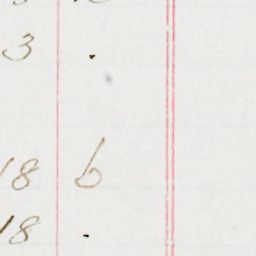 3 .
18 6
18 .